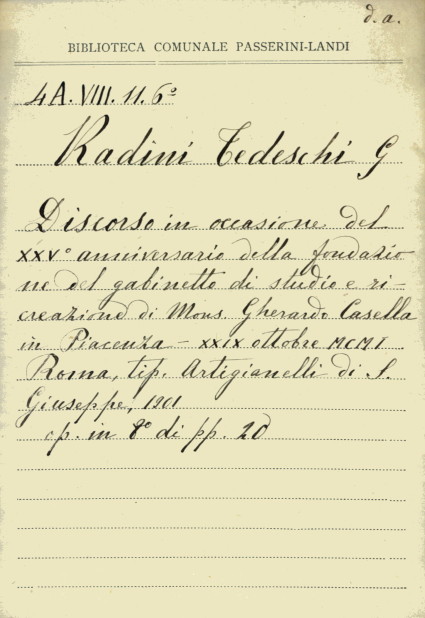 d. a.
BIBLIOTECA COMUNALE PASSERINI-LANDI
4A. VIII. 11. 6º
Radini Tedeschi G
Discorso in occasione del
XXVº anniversario della fondazio
ne del gabinetto di studio e ri-
creazione di Mons. Gherardo Casella
in Piacenza - XXIX ottobre MCMI
Roma, tip. Artigianelli di S.
Giuseppe, 1901
op. in 8º di pp. 20